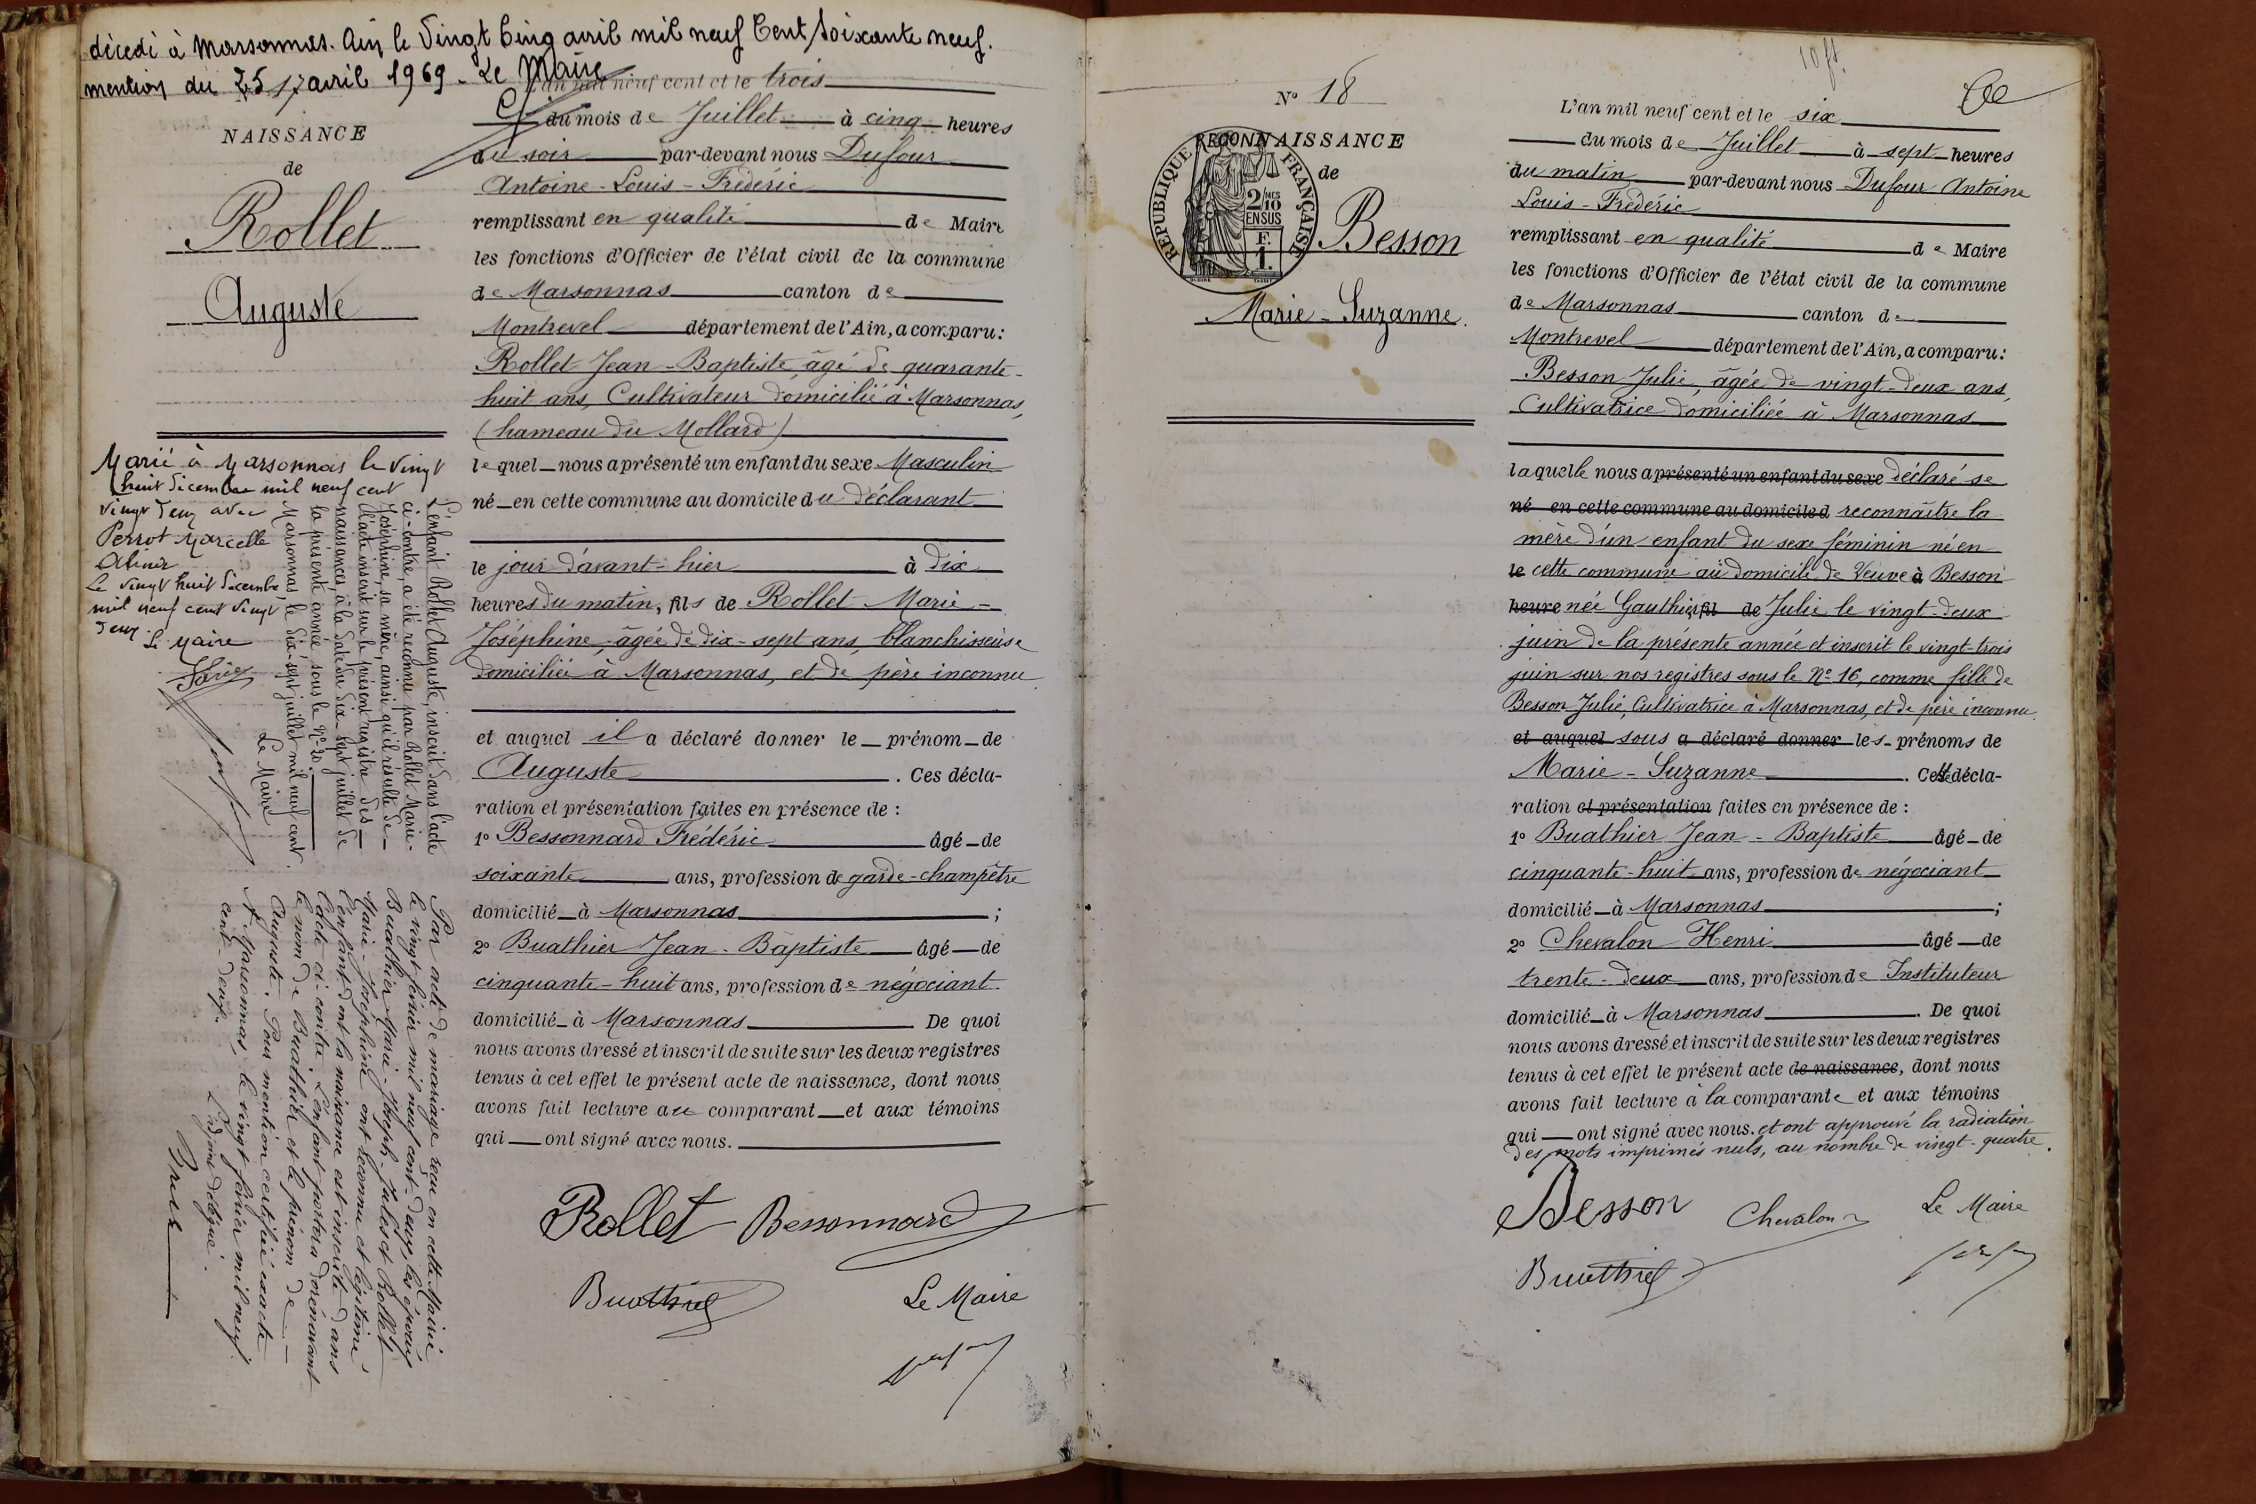 décédé à Marsonnas. Ain le Vingt Cinq avril mil neuf Cent Soixante neuf.
mention du 25 avril 1969 - Le Maire
NAISSANCE
de
Rollet
Auguste
Marié à Marsonnas le vingt
huit décembre mil neuf cent
vingt deux avec
Perrot Marcelle
Le vingt huit décembre
mil neuf cent vingt
deux. Le Maire
L'enfant Rollet Auguste, inscrit dans l'acte
ci-contre, a été reconnu par Rollet Marie-
Joséphine, sa mère, ainsi qu'il résulte de
l'acte inscrit sur le présent registre des
naissances, à la date du dix-sept juillet de
la présente année sous le N° 20.
Marsonnas le dix-sept juillet mil neuf cent.
Le Maire
Par acte de mariage reçu en cette Mairie
le vingt février mil neuf cent-deux, les époux
Buathier Marie-Joseph-Jules et Rollet
Marie-Joséphine ont reconnu et légitimé
l'enfant dont la naissance est inscrite dans
l'acte ci-contre. L'enfant portera dorénavant
le nom de Buathier et le prénom de
Auguste. Pour mention certifiée exacte
A Marsonnas, le vingt février mil neuf
cent-deux.
L'Adjoint délégué.
L'an mil neuf cent et le trois
du mois de Juillet à cinq heures
du soir par-devant nous Dufour
Antoine-Louis-Frédéric
remplissant en qualité de Maire
les fonctions d'Officier de l'état civil de la commune
de Marsonnas canton de
Montrevel département de l'Ain, a comparu:
Rollet Jean-Baptiste, âgé de quarante-
huit ans, Cultivateur domicilié à Marsonnas,
(hameau du Mollard)
lequel nous a présenté un enfant du sexe Masculin
né en cette commune au domicile du déclarant
le jour d'avant-hier à dix
heures du matin, fils de Rollet Marie-
Joséphine, âgée de dix-sept ans, blanchisseuse
domiciliée à Marsonnas, et de père inconnu
et auquel il a déclaré donner le prénom de
Auguste. Ces décla-
ration et présentation faites en présence de :
1° Bessonnard Frédéric âgé de
soixante ans, profession de garde-champêtre
domicilié à Marsonnas ;
2° Buathier Jean-Baptiste âgé de
cinquante-huit ans, profession de négociant
domicilié à Marsonnas. De quoi
nous avons dressé et inscrit de suite sur les deux registres
tenus à cet effet le présent acte de naissance, dont nous
avons fait lecture au comparant et aux témoins
qui ont signé avec nous.
Rollet Bessonnard
Buathier Le Maire
N° 18
RECONNAISSANCE
de
RÉPUBLIQUE FRANÇAISE
2/10 EN SUS
F. 1.
Besson
Marie-Suzanne.
L'an mil neuf cent et le six
du mois de Juillet à sept heures
du matin par-devant nous Dufour Antoine
Louis-Frédéric
remplissant en qualité de Maire
les fonctions d'Officier de l'état civil de la commune
de Marsonnas canton de
Montrevel département de l'Ain, a comparu:
Besson Julie, âgée de vingt-deux ans,
Cultivatrice domiciliée à Marsonnas
laquelle nous a présenté un enfant du sexe déclaré se
né en cette commune au domicile d reconnaître la
mère d'un enfant du sexe féminin né en
le cette commune au domicile de Veuve à Besson
heure née Gauthier fil de Julie le vingt-deux
juin de la présente année et inscrit le vingt-trois
juin sur nos registres sous le N° 16, comme fille de
Besson Julie, Cultivatrice à Marsonnas, et de père inconnu.
et auquel sous a déclaré donner les prénoms de
Marie-Suzanne. Cette décla-
ration et présentation faites en présence de :
1° Buathier Jean-Baptiste âgé de
cinquante-huit ans, profession de négociant
domicilié à Marsonnas ;
2° Chevalon Henri âgé de
trente-deux ans, profession de Instituteur
domicilié à Marsonnas. De quoi
nous avons dressé et inscrit de suite sur les deux registres
tenus à cet effet le présent acte de naissance, dont nous
avons fait lecture à la comparante et aux témoins
qui ont signé avec nous. et ont approuvé la radiation
des mots imprimés nuls, au nombre de vingt-quatre.
Besson Chevalon Le Maire
Buathier